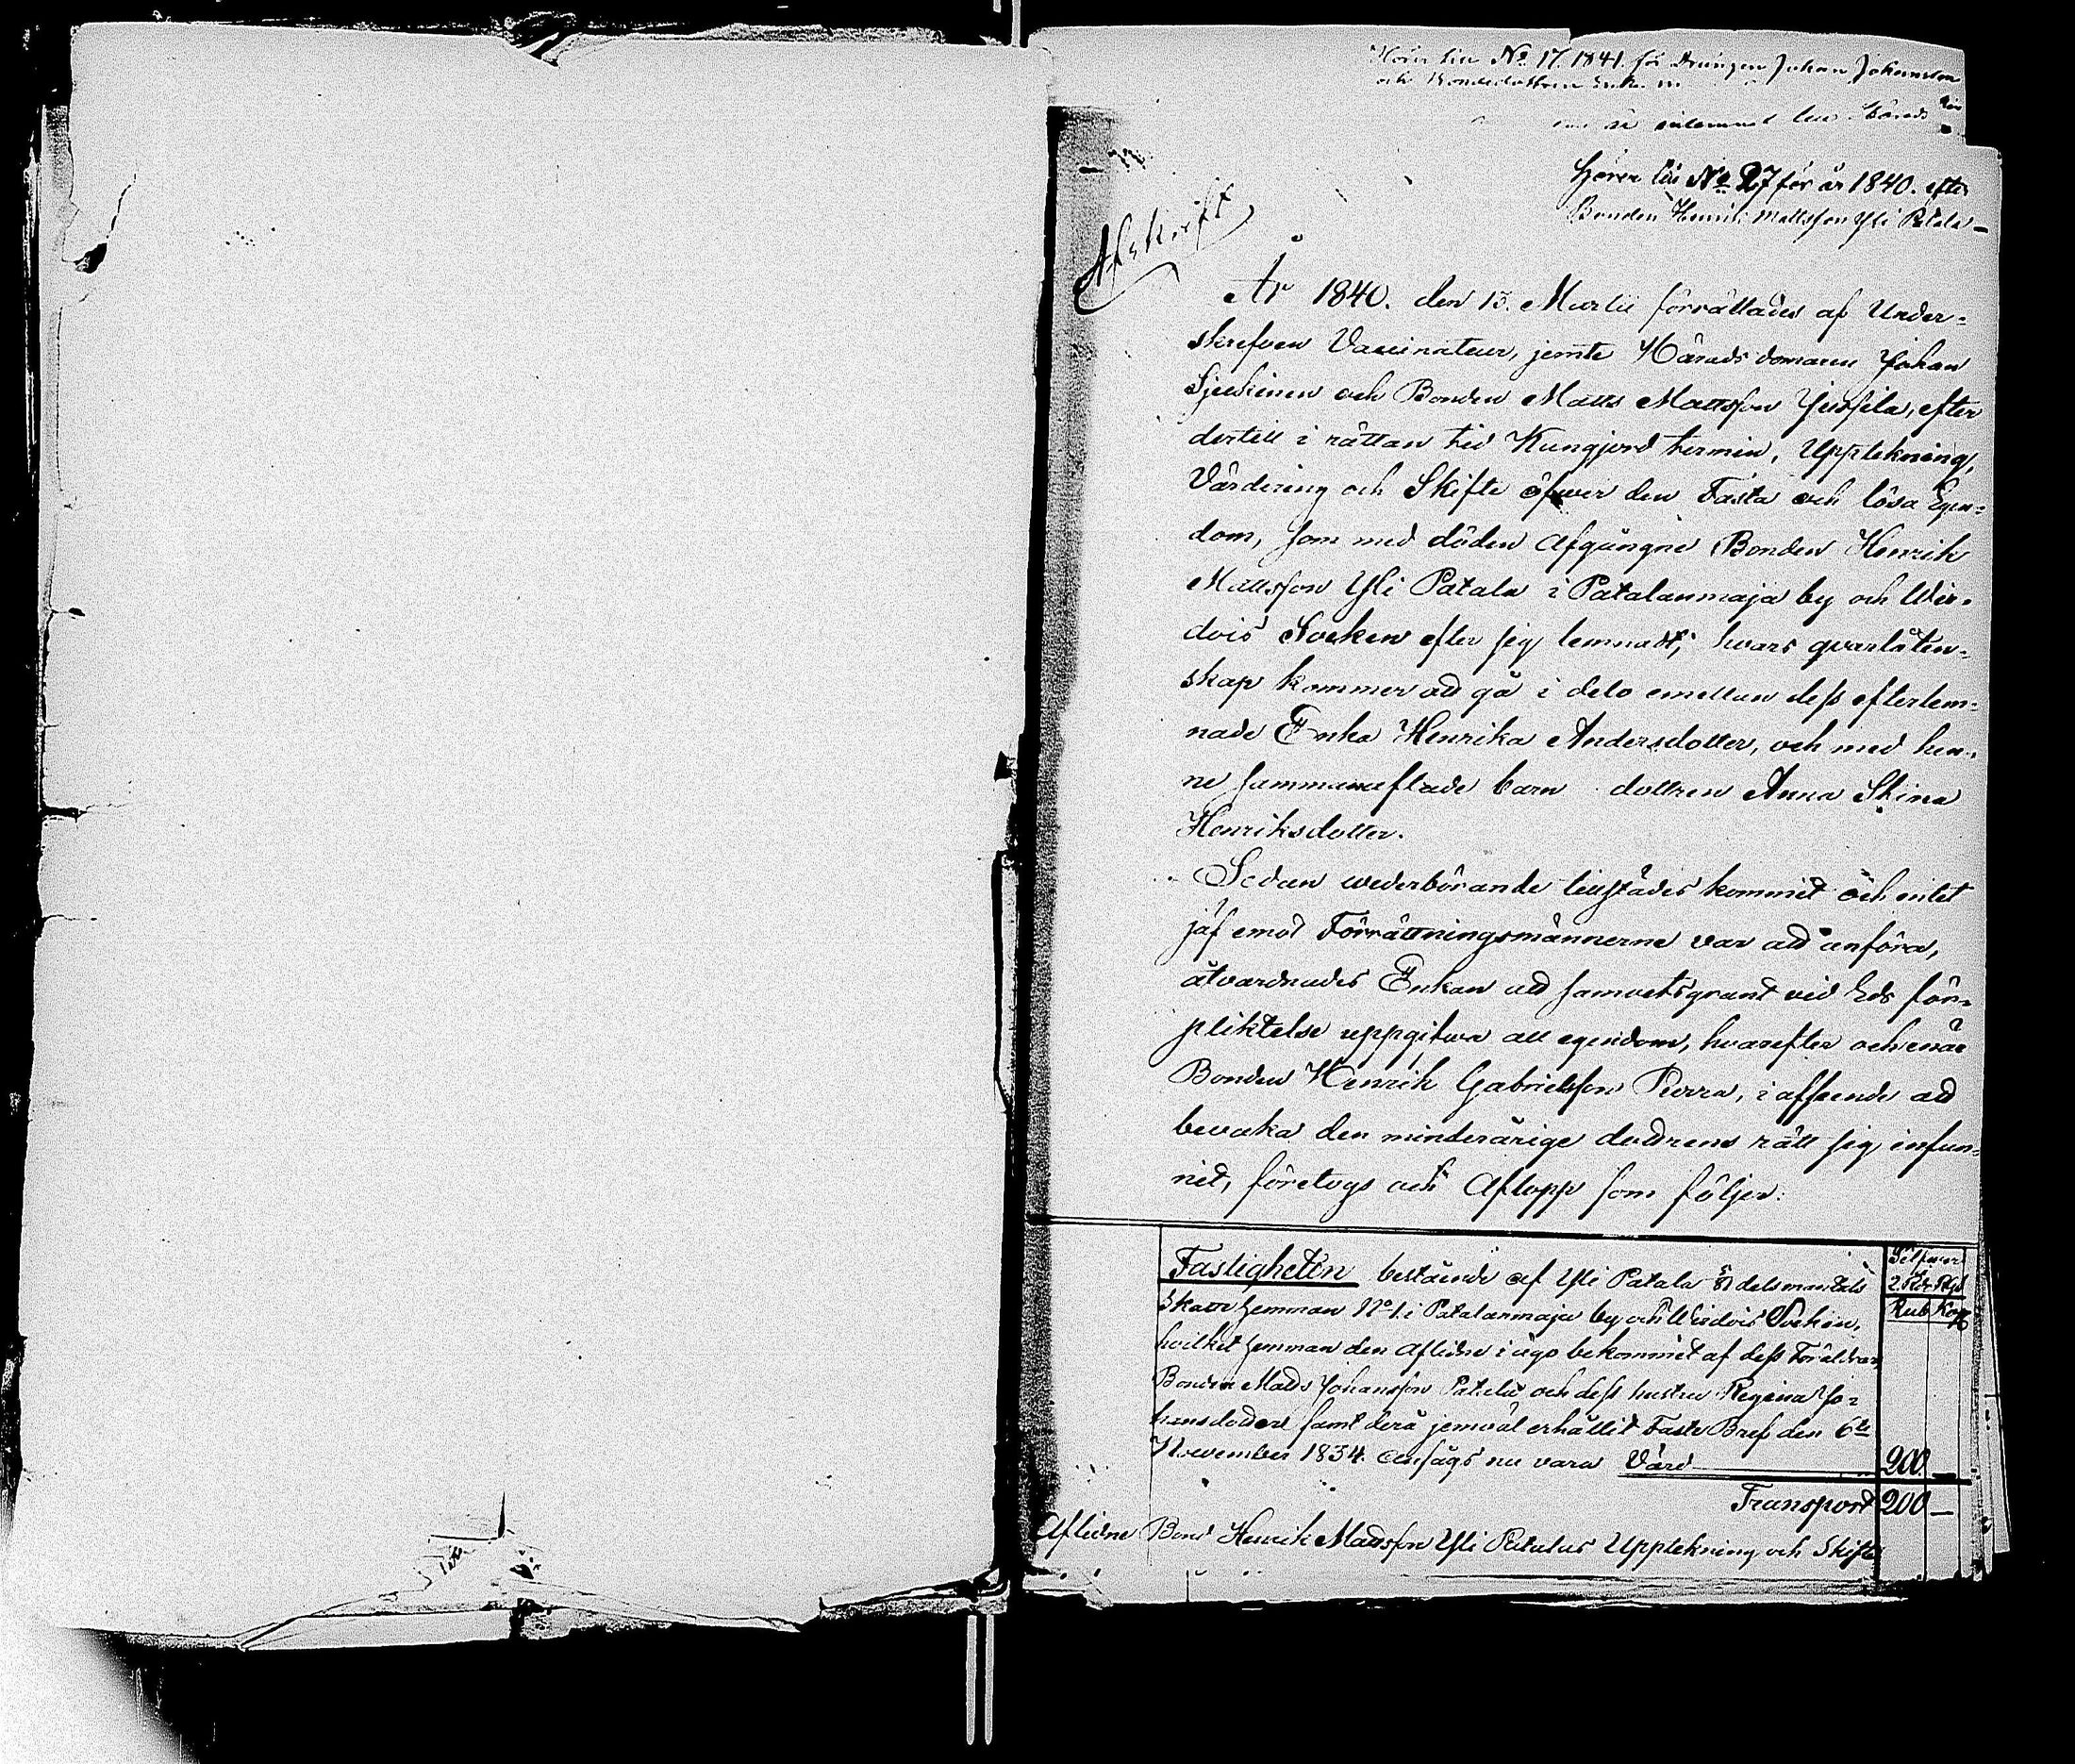 Hörer till No 17. 1841. för Drängen Johan Johansson
och Bondedottren
Hörer till No 27 för år 1840. efter
Bonden Henrik Mattsson Yli Patala
Afskrift
År 1840. den 13. Martii förrättades af Under-
skrefven Vaccinateur, jemte Häradsdomaren Johan
och Bonden Matts Mattsson Jussila, efter
dertill i rättan tid Kungjord termin, Upptekning,
Värdering och Skifte öfwer den Fasta och lösa Egen-
dom, som med döden afgångne Bonden Henrik
Mattsson Yli Patala i Patalanmaja by och Wir-
dois Socken efter sig lemnat; hvars qvarlåten-
skap kommer att gå i delo emellan dess efterlem-
nade Enka Henrika Andersdotter, och med hen-
ne sammanaflade barn dottren Anna Stina
Henriksdotter.
Sedan wederbörande tillstädes kommit och intet
jäf emot Förrättningsmännerne var att anföra,
åtvarnades Enkan att samvetsgrant vid Eds för-
pliktelse uppgifwa all egendom, hvarefter och enär
Bonden Henrik Gabrielsson Perra, i afseende att
bevaka den minderårige dottrens rätt sig infun-
nit, företogs och aflopp som följer:
Silfwer
Rub Kop
Fastigheten bestående af Yli Patala delsmantals
Skatte hemman No 1. i Patalanmaja by och Wirdois Socken,
hvilket hemman den aflidne i ägo bekommit af dess Föräldrar,
Bonden Matts Johansson Patala och dess hustru Regina Jo-
hansdotter samt derå jemväl erhållit Faste Bref den 6te
November 1834. ansågs nu vara Värd 200 —
Transport 200 —
Aflidne Bond Henrik Mattsson Yli Patalas Upptekning och Skifte